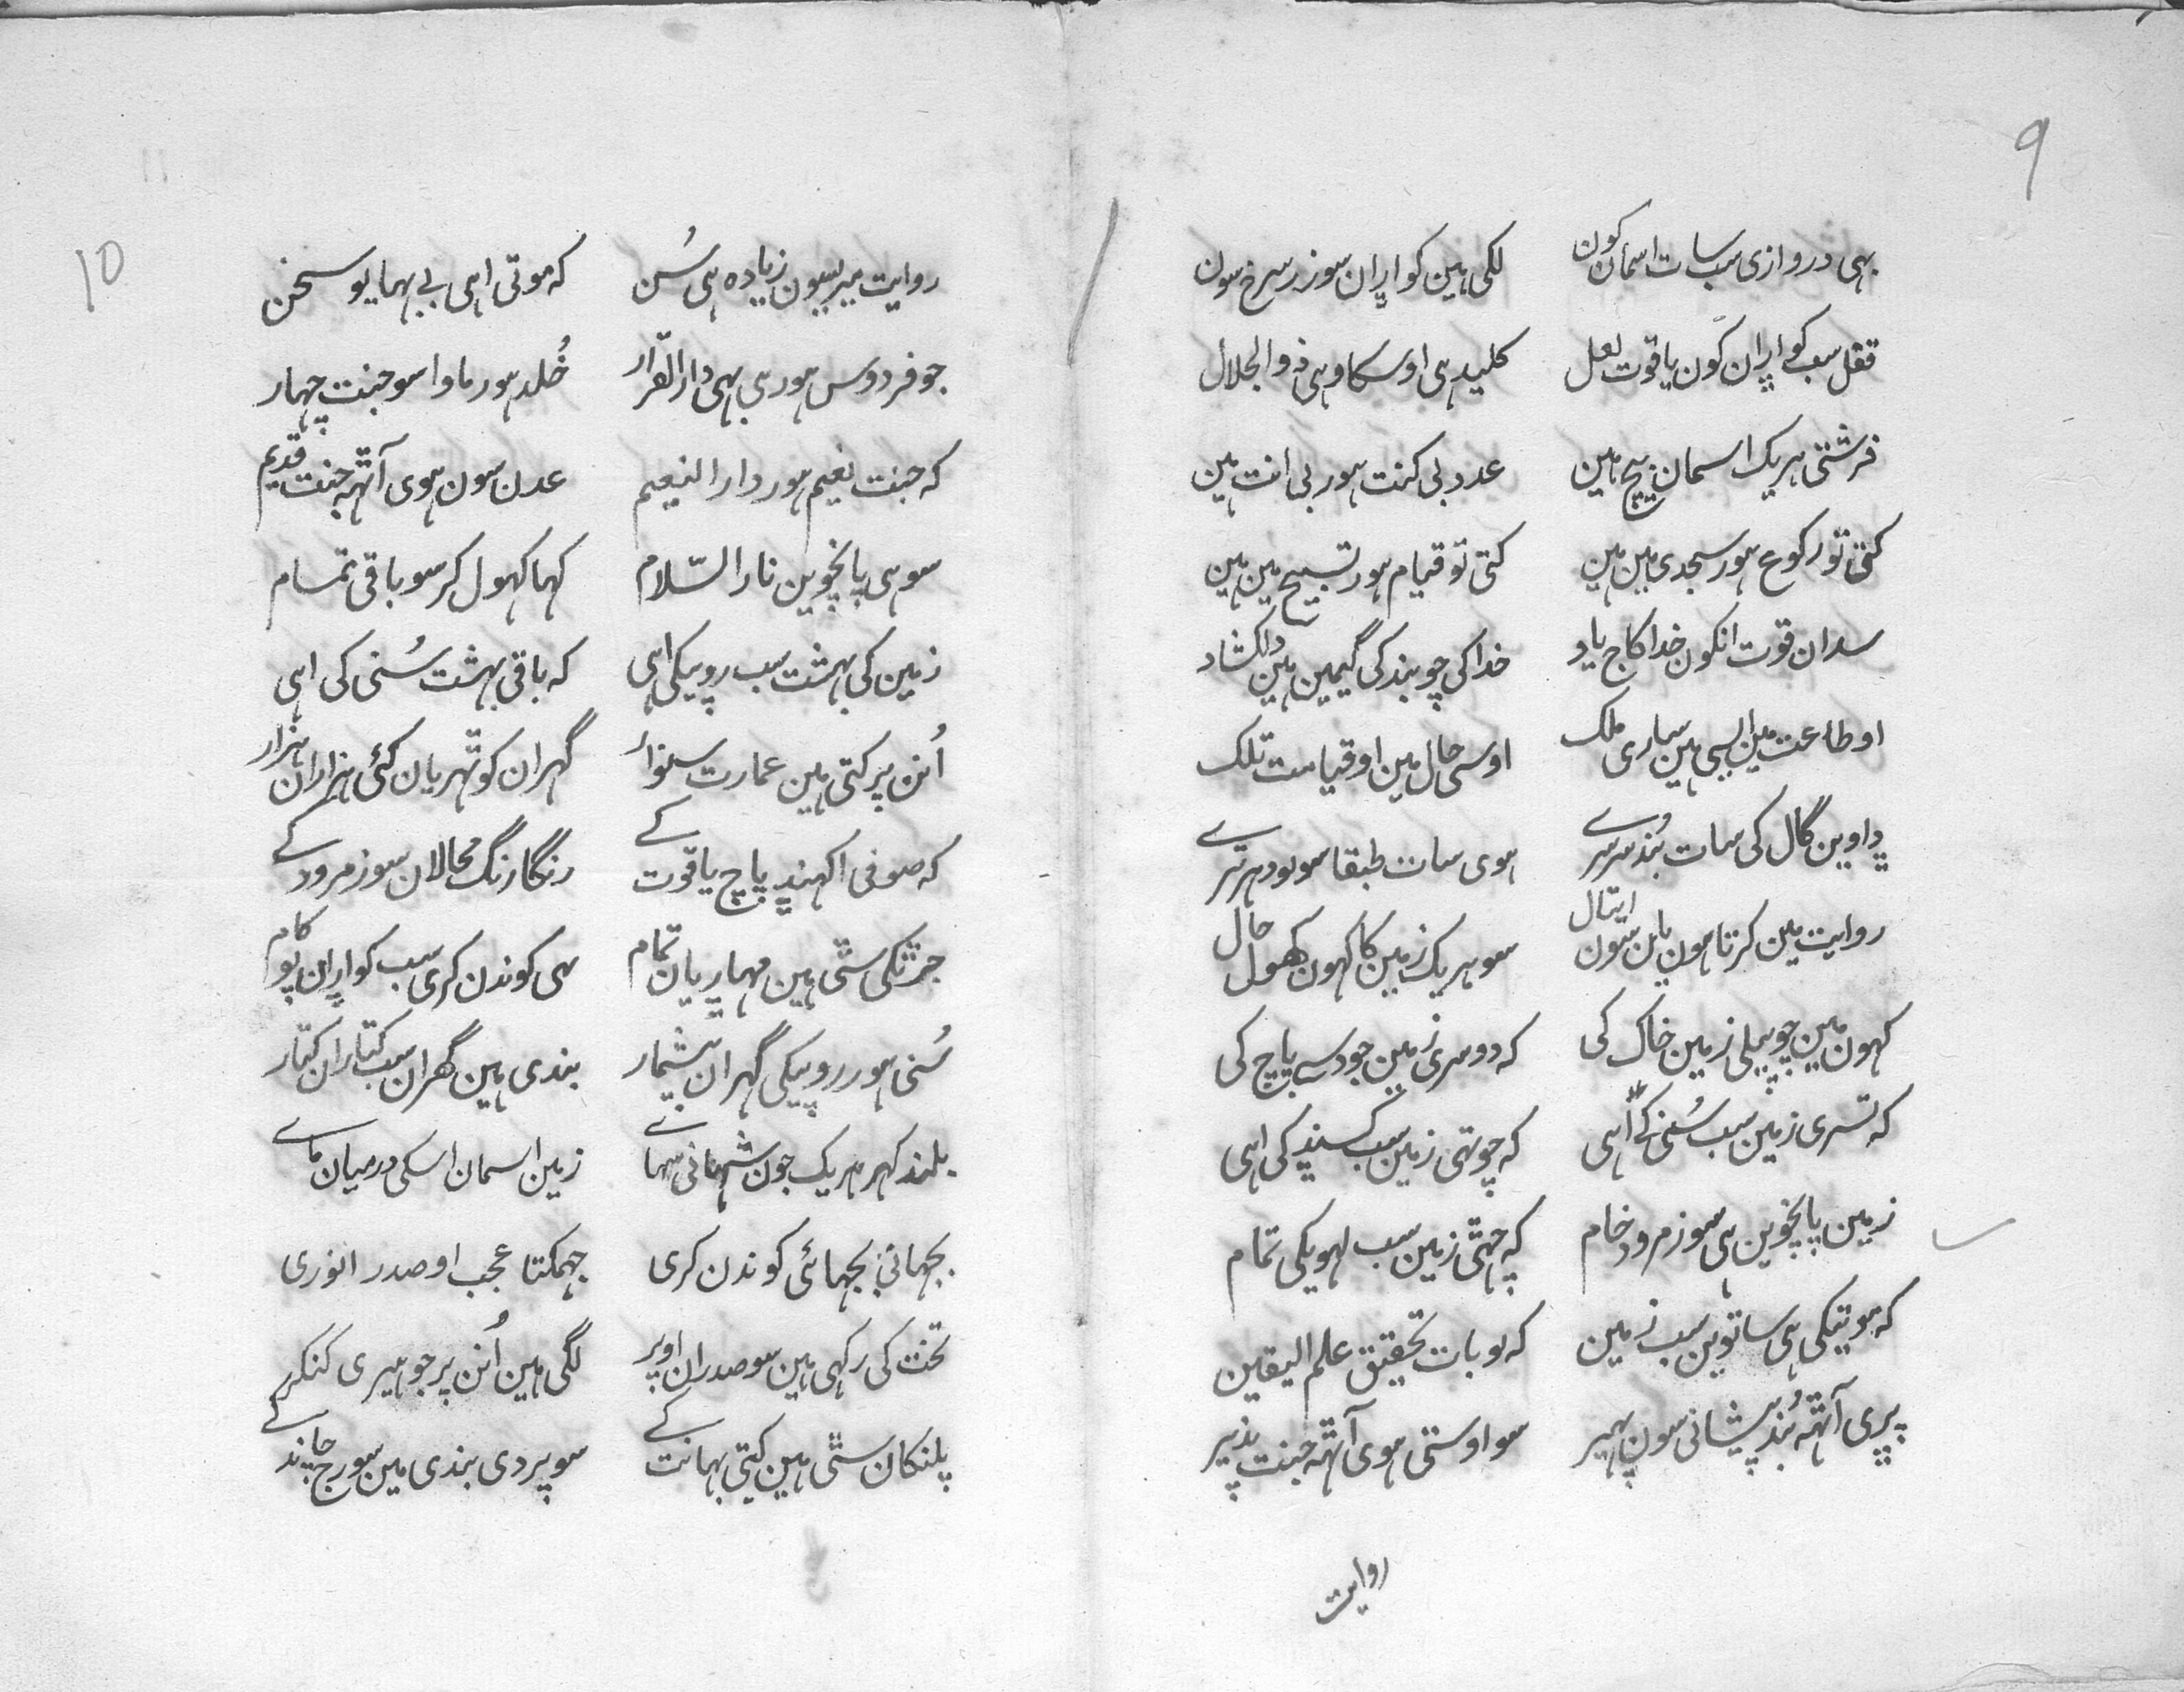 9
بہی دروازی سب سات اسمان کون لکی ہین کواپران سوزر سرخ سون
قفل سب کواپران کون یاقوت لعل کلید ہی اوسکا وہی ذوالجلال
فرشتی ہریک اسمان بیچ ہین عدد بی کنت ہور بی انت ہین
کتی تو رکوع ہور سجدی مین ہین کتی تو قیام ہور تسبیح مین ہین
سدان قوت انکون خدا کاج یاد خدا کی چو بندکی گیمین ہین دلکشاد
او طاعت مین ایسی ہین ساری ملک اوسی حال مین او قیامت تلک
اوین گال کی سات بُند سرسرے ہوی سات طبقا سو دہرترے
روایت مین کرتا ہون یان سون ایتال سو ہریک زمین کا کہون کھول حال
کہون مین چو پہلی زمین خاک کی کہ دوسری زمین جو دسے پاچ کی
کہ تسری زمین سب سُنی کے اہی کہ چوتہی زمین سب کسپند کی اہی
زمین پانچوین ہی سو زمرود خام کہ چہٹی زمین سب لہویکی تمام
کہ موتیکی ہی ساتوین سب زمین کہ یو بات تحقیق علم الیقین
پری آٹہہ بُند پیشانی سون پہیر سو اوستی ہوی آٹہہ جنت پذیر
روایت
10
روایت میں یون زیادہ ہی سُن کہ موتی اہی بے بہا یو سخن
جو فردوس ہور ہی بہی دارالقرّار خُلد ہور ماوا سو جنت چہار
کہ جنت نعیم ہور دارالنعیم عدن سون ہوی آٹہہ جنت قدیم
سو ہی پانچوین نارالسّلام کہا کہول کر سو باقی تمام
زمین کی بہشت سب روپیکی اہی کہ باقی بہشت سُنی کی اہی
اُنن پر کتی ہین عمارت سنوار گہران کوٹہریان کئی ہزاران ہزار
کہ صوفی اکہند پاچ یاقوت کے رنگا رنگ محالان سو زمرود کے
جرتکی ستی ہین مہاریان تمام بہی کوندن کری سب کواپران پو کام
سُنی ہور روپیکی گہران بیشمار بندی ہین گھران سب کتاران کتار
بلند کہر ہریک جون شہانی سہانے زمین اسمان اسکی درمیان مانے
بچہانی بچہائی کوندن کری جہمکتا عجب او صدر انوری
تخت کی رکہی ہین سو صدران اوپر لگی ہین اُنن پر جو ہیری کنکر
پلنکان ستی ہین کیتی بہانت کے سو پردی بندی ہین سورج چاند کے